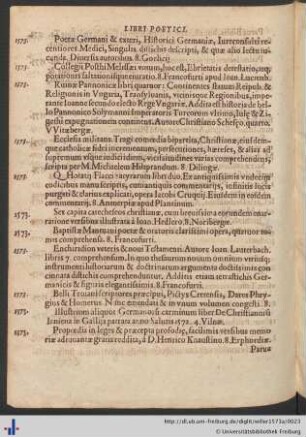 LIBRI POETICI.
1573. Poetæ Germani & exteri, Historici Germaniæ, Iurreonsulti re-
centiores Medici, Singulis distichis descripti, & quæ alio lectu iu-
cunda. Diversis autoribus. 8. Gorlicij.
1573. Collegij Posthi Melissæi votum, hoc est, Ebrietatis detestatio, atq;
potationis saltationisq; eiuratio. 8. Francofurti apud Ioan. Lucienb.
1573. Ruinæ Pannonicæ libri quatuor: Continentes statum Reipub. &
Religionis in Vngaria, Transylvania, vicinisque Regionibus, impe-
rante Ioanne secundo electo Rege Vngariæ. Addita est historia de bel-
lo Pannonico Solymanni Imperatoris Turcorum vltimo, Iulæ & Zi-
gethi expugnationem continens. Autore Christiano Schesæo, quarto,
VVitebergæ.
1573. Ecclesia militans Tragicomœdia bipartita, Christianæ, eiusdem-
que catholicæ fidei incrementum, persecutiones, hæreses, & alias ad
supremum vsque iudicij diem, vicissitudines varias comprehendens,
scripta per M. Michaelem Hilsprandum. 8. Dilingæ.
1573. Q. Horatij Flacci satyrarum libri duo, Ex antiquissimis vndecim
codicibus manuscriptis, cum antiquis commentarijs, infinitis locis
purgati & clarius explicati, opera Iacobi Cruquij. Eiusdem in eosdem
commentarij. 8. Antuerpiæ apud Plantinum.
1573. Sex capita catechismi christianæ, cum breuissima eorundem enar-
ratione versibus illustrata à Ioan. Hedlero 8. Noribergæ.
1573. Baptistæ Mantuani poetæ & oratoris clarissimi opera, quatuor to-
mis comprehensa. 8. Francofurti.
1573. Enchiridion veteris & noui Testamenti. Autore Ioan. Lauterbach.
libris 7. comprehensum. In quo thesaurum nouum omnium vtriusq;
instrumenti historiarum & doctrinarum ordine dispositarum con-
cinnata disticha comprehenduntur. Addita etiam tetrasticha Ger-
manicis & figuris elegantissimis. 8. Francofurti.
1573. Belli Troiani scriptores præcipui, Dictys Cretensis, Dares Phry-
gius & Homerus. Nunc emendati & in vnum volumen congesti. 8.
1573. Illustrium aliquot Germanorum carminum liber De Christianorum
leniena in Gallijs patrata anno Salutis 1572. 4. Vilnæ.
1573. Propædia in leges & præcepta prosodiæ, facilimis versibus memo-
riæ adiuuandæ gratia reddita, à D. Henrico Knaustino. 8. Erphordiæ.
Parua
http://dl.ub.uni-freiburg.de/diglit/willer1573a/0023
© Universitätsbibliothek Freiburg